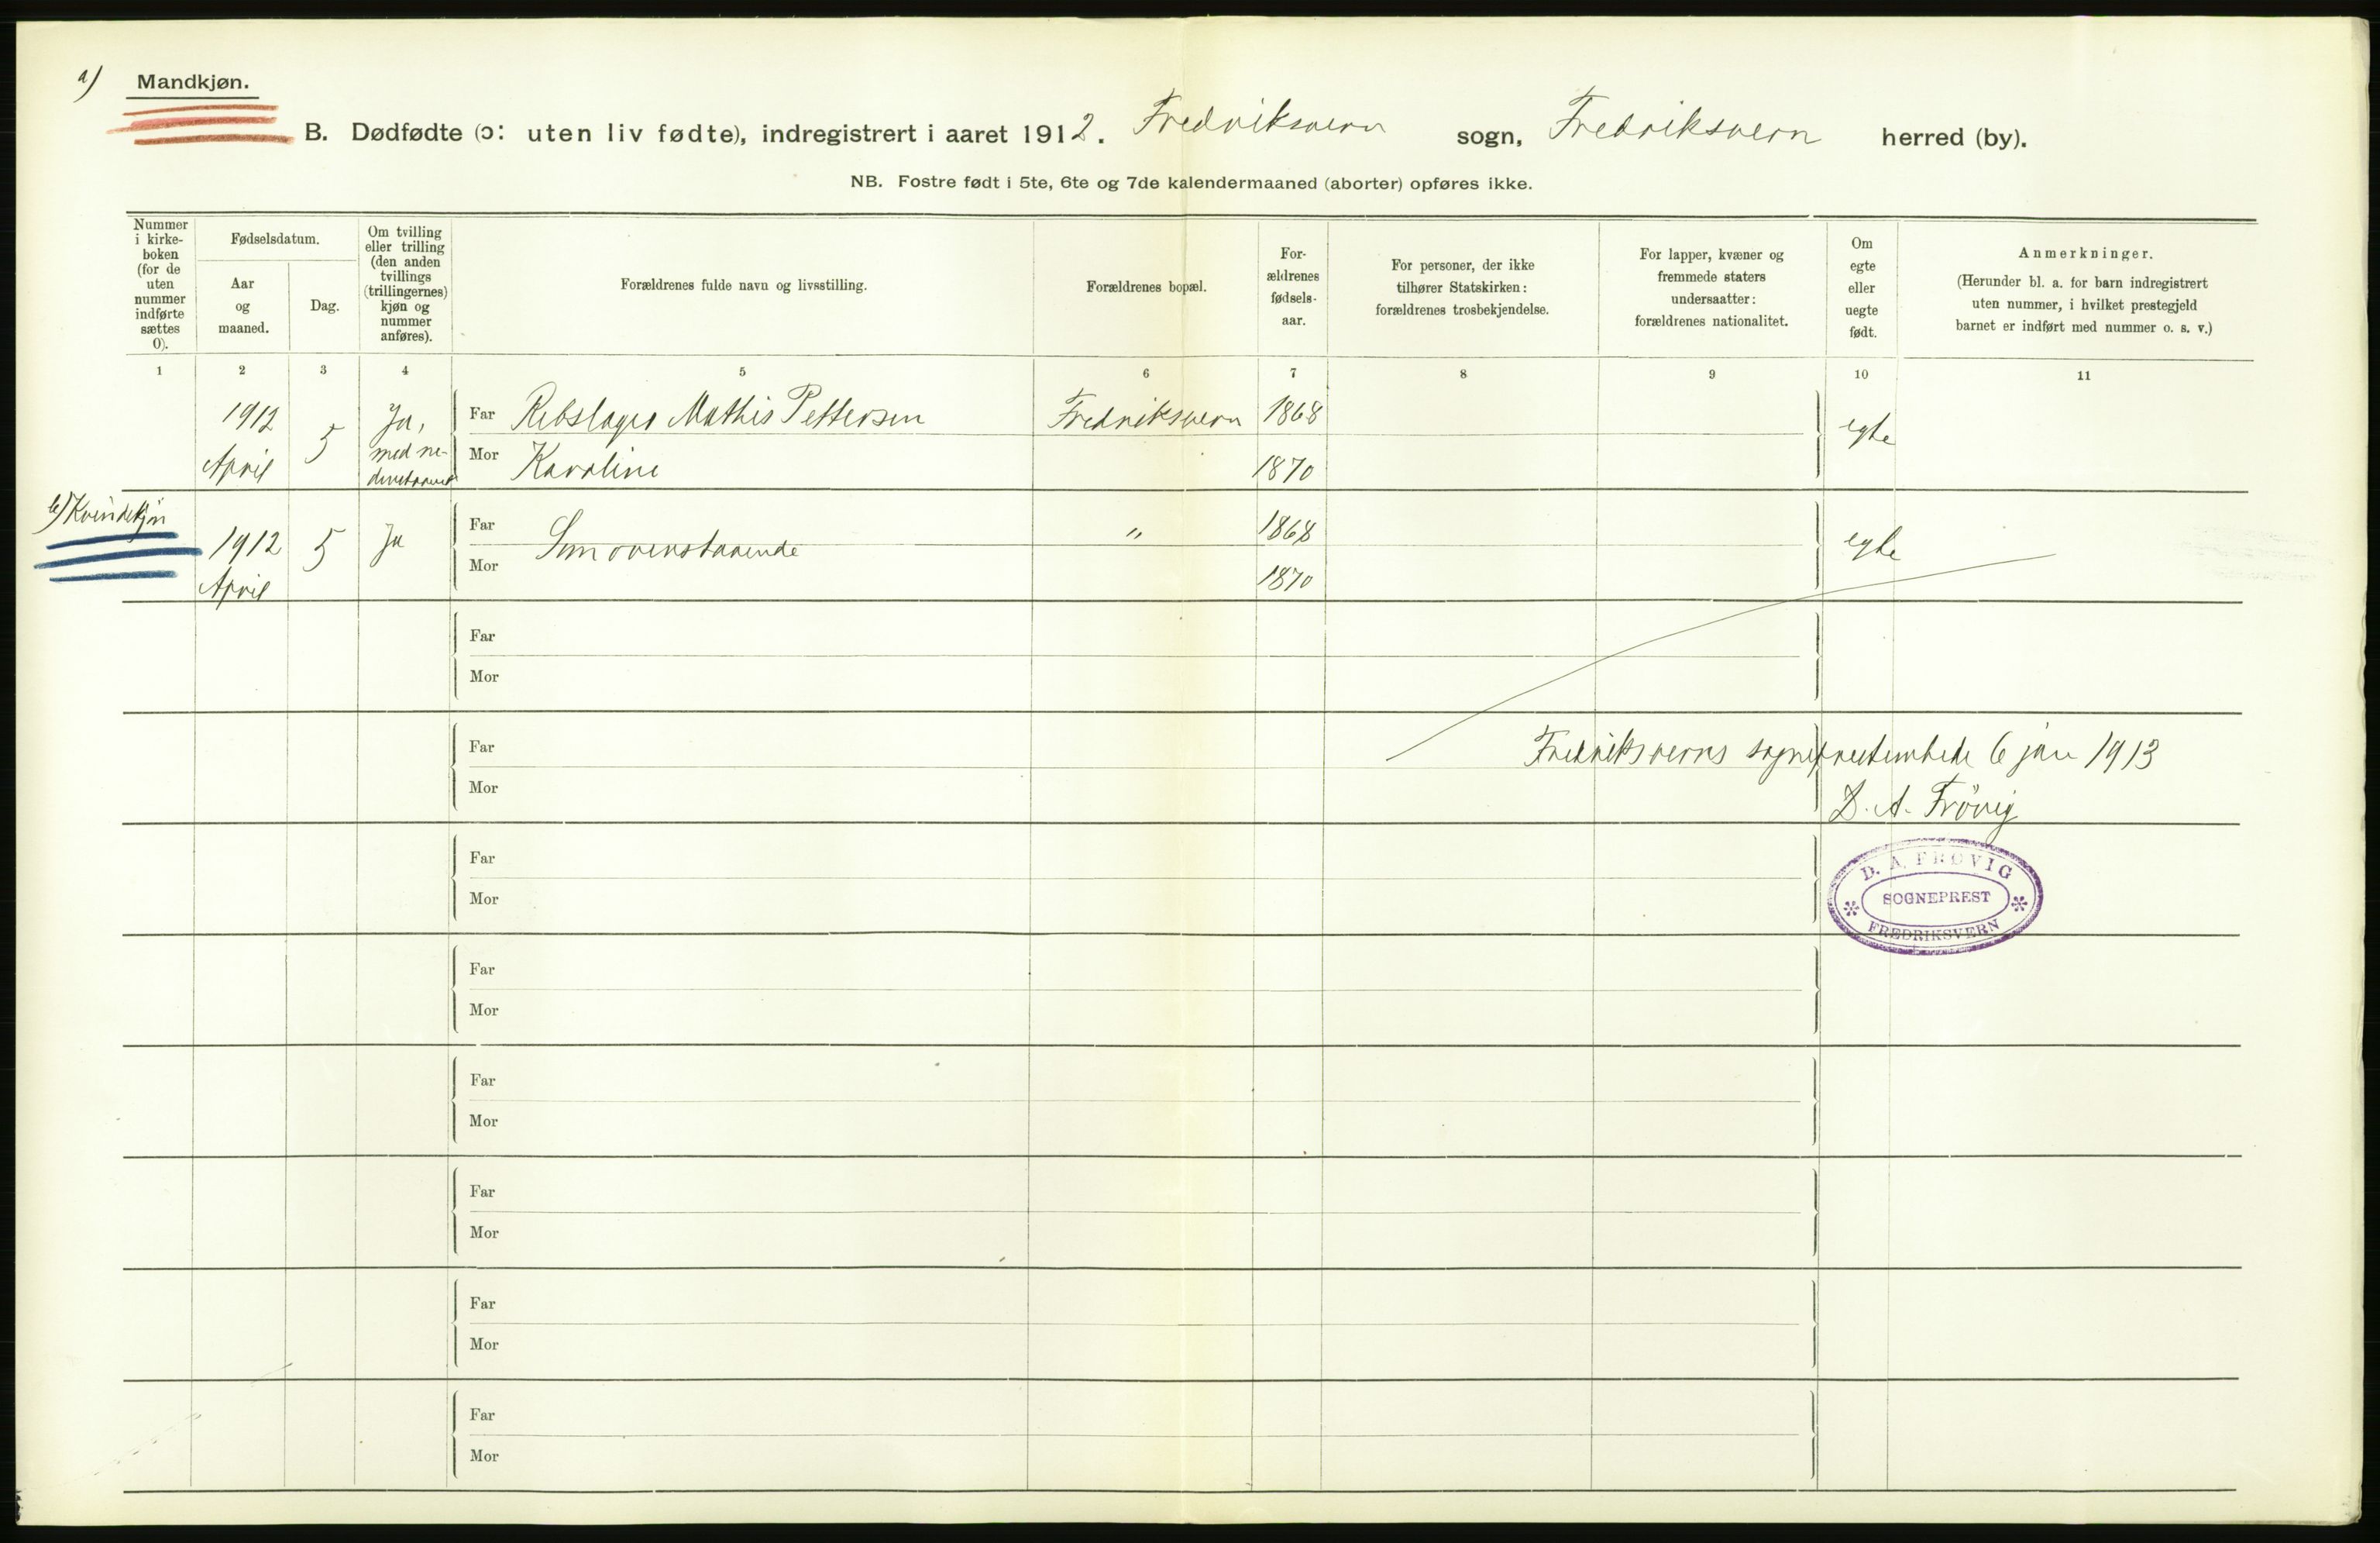 a) Mandkjøn.
B. Dødfødte (ɔ: uten liv fødte), indregistrert i aaret 1912. Fredriksvern sogn, Fredriksvern herred (by).
NB. Fostre født i 5te, 6te og 7de kalendermaaned (aborter) opføres ikke.
Nummer
i kirke-
boken
(for de
uten
nummer
indførte
sættes
0).
Fødselsdatum.
Aar
og
maaned.
Dag.
Om tvilling
eller trilling
(den anden
tvillings
(trillingernes)
kjøn og
nummer
anføres).
Forældrenes fulde navn og livsstilling.
Forældrenes bopæl.
For-
ældrenes
fødsels-
aar.
For personer, der ikke
tilhører Statskirken:
forældrenes trosbekjendelse.
For lapper, kvæner og
fremmede staters
undersaatter:
forældrenes nationalitet.
Om
egte
eller
uegte
født.
Anmerkninger.
(Herunder bl. a. for barn indregistrert
uten nummer, i hvilket prestegjeld
barnet er indført med nummer o. s. v.)
1 2 3 4 5 6 7 8 9 10 11
1912
April
5
Ja,
med ne-
denstaaende
Far Rebslager Mathis Pettersen Fredriksvern 1868
Mor Karoline 1870
egte
b) Kvindekjøn
1912
April
5
Ja
Far
Som ovenstaaende
Mor
"
1868
1870
egte
Far
Mor
Far
Mor
Fredriksverns sogneprestembede 6 jan 1913
D. A. Frövig
D. A. FRØVIG
SOGNEPREST
FREDRIKSVERN
Far
Mor
Far
Mor
Far
Mor
Far
Mor
Far
Mor
Far
Mor